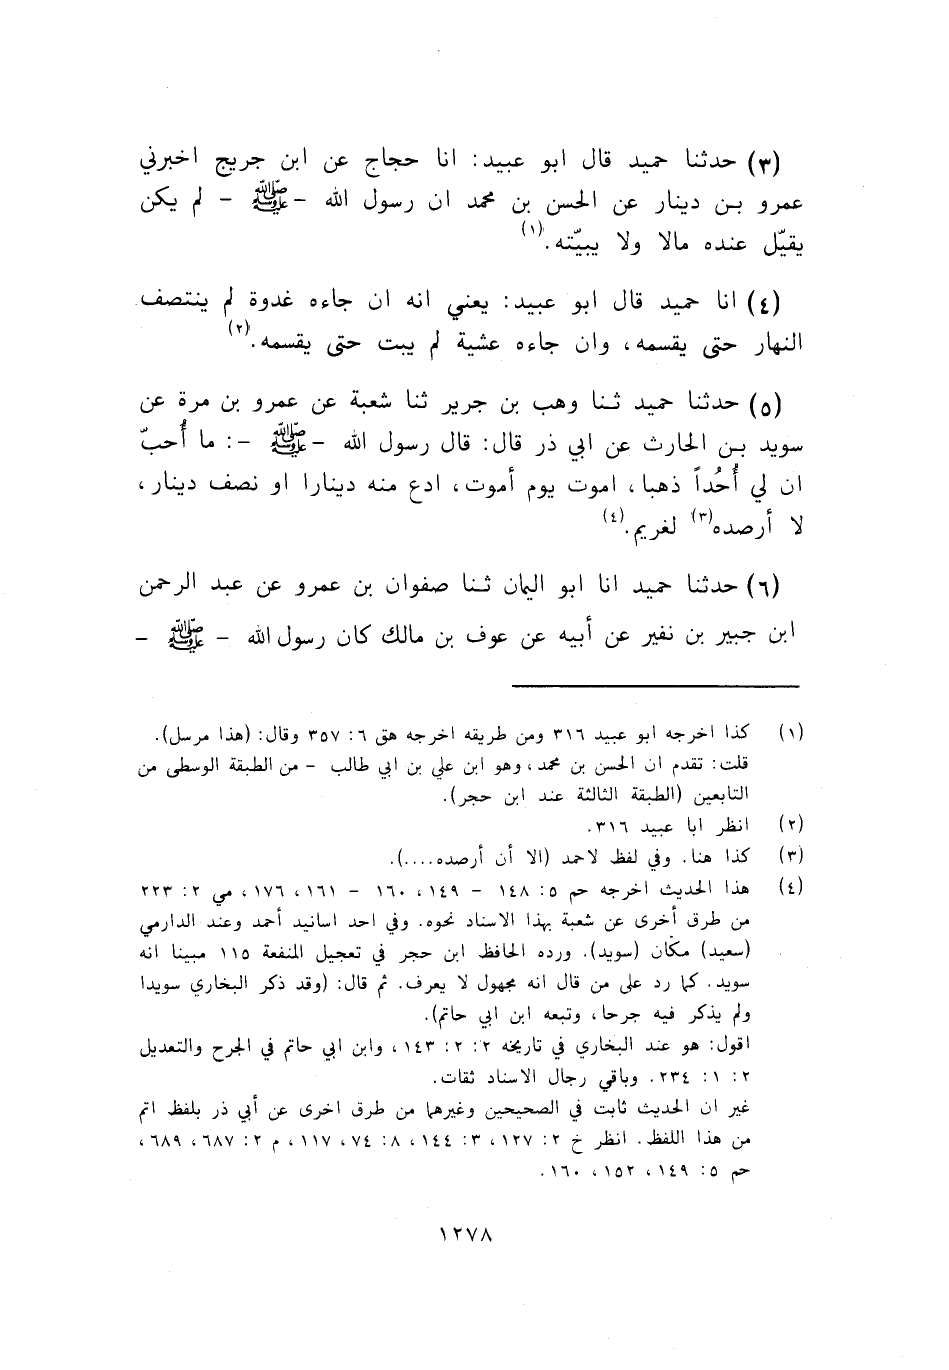 (٣) حدثنا حميد قال ابو عبيد: انا حجاج عن ابن جريج اخبرني
عمرو بن دينار عن الحسن بن محمد ان رسول الله -ﷺ- لم يكن
يقيّل عنده مالا ولا يبيّته.(١)
(٤) انا حميد قال ابو عبيد: يعني انه ان جاءه غدوة لم ينتصف
النهار حتى يقسمه، وان جاءه عشية لم يبت حتى يقسمه.(٢)
(٥) حدثنا حميد ثنا وهب بن جرير ثنا شعبة عن عمرو بن مرة عن
سويد بن الحارث عن ابي ذر قال: قال رسول الله -ﷺ-: ما أُحبّ
ان لي أُحُداً ذهبا، اموت يوم أموت، ادع منه دينارا او نصف دينار،
لا أرصده(٣) لغريم.(٤)
(٦) حدثنا حميد انا ابو اليمان ثنا صفوان بن عمرو عن عبد الرحمن
ابن جبير بن نفير عن أبيه عن عوف بن مالك كان رسول الله - ﷺ -
(١) كذا اخرجه ابو عبيد ٣١٦ ومن طريقه اخرجه هق ٦: ٣٥٧ وقال: (هذا مرسل).
قلت: تقدم ان الحسن بن محمد، وهو ابن علي بن ابي طالب - من الطبقة الوسطى من
التابعين (الطبقة الثالثة عند ابن حجر).
(٢) انظر ابا عبيد ٣١٦.
(٣) كذا هنا. وفي لفظ لاحمد (الا أن أرصده....).
(٤) هذا الحديث اخرجه حم ٥: ١٤٨ - ١٤٩، ١٦٠ - ١٦١، ١٧٦، مي ٢: ٢٢٣
من طرق أخرى عن شعبة بهذا الاسناد نحوه. وفي احد اسانيد أحمد وعند الدارمي
(سعيد) مكان (سويد). ورده الحافظ ابن حجر في تعجيل المنفعة ١١٥ مبينا انه
سويد. كما رد على من قال انه مجهول لا يعرف. ثم قال: (وقد ذكر البخاري سويدا
ولم يذكر فيه جرحا، وتبعه ابن ابي حاتم).
اقول: هو عند البخاري في تاريخه ٢: ٢: ١٤٣، وابن ابي حاتم في الجرح والتعديل
٢: ١: ٢٣٤. وباقي رجال الاسناد ثقات.
غير ان الحديث ثابت في الصحيحين وغيرهما من طرق اخرى عن أبي ذر بلفظ اتم
من هذا اللفظ. انظر خ ٢: ١٢٧، ٣: ١٤٤، ٨: ٧٤، ١١٧، م ٢: ٦٨٧، ٦٨٩،
حم ٥: ١٤٩، ١٥٢، ١٦٠.
١٢٧٨